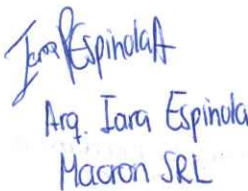 Iara Espinola
Arq. Iara Espinola
Macron SRL